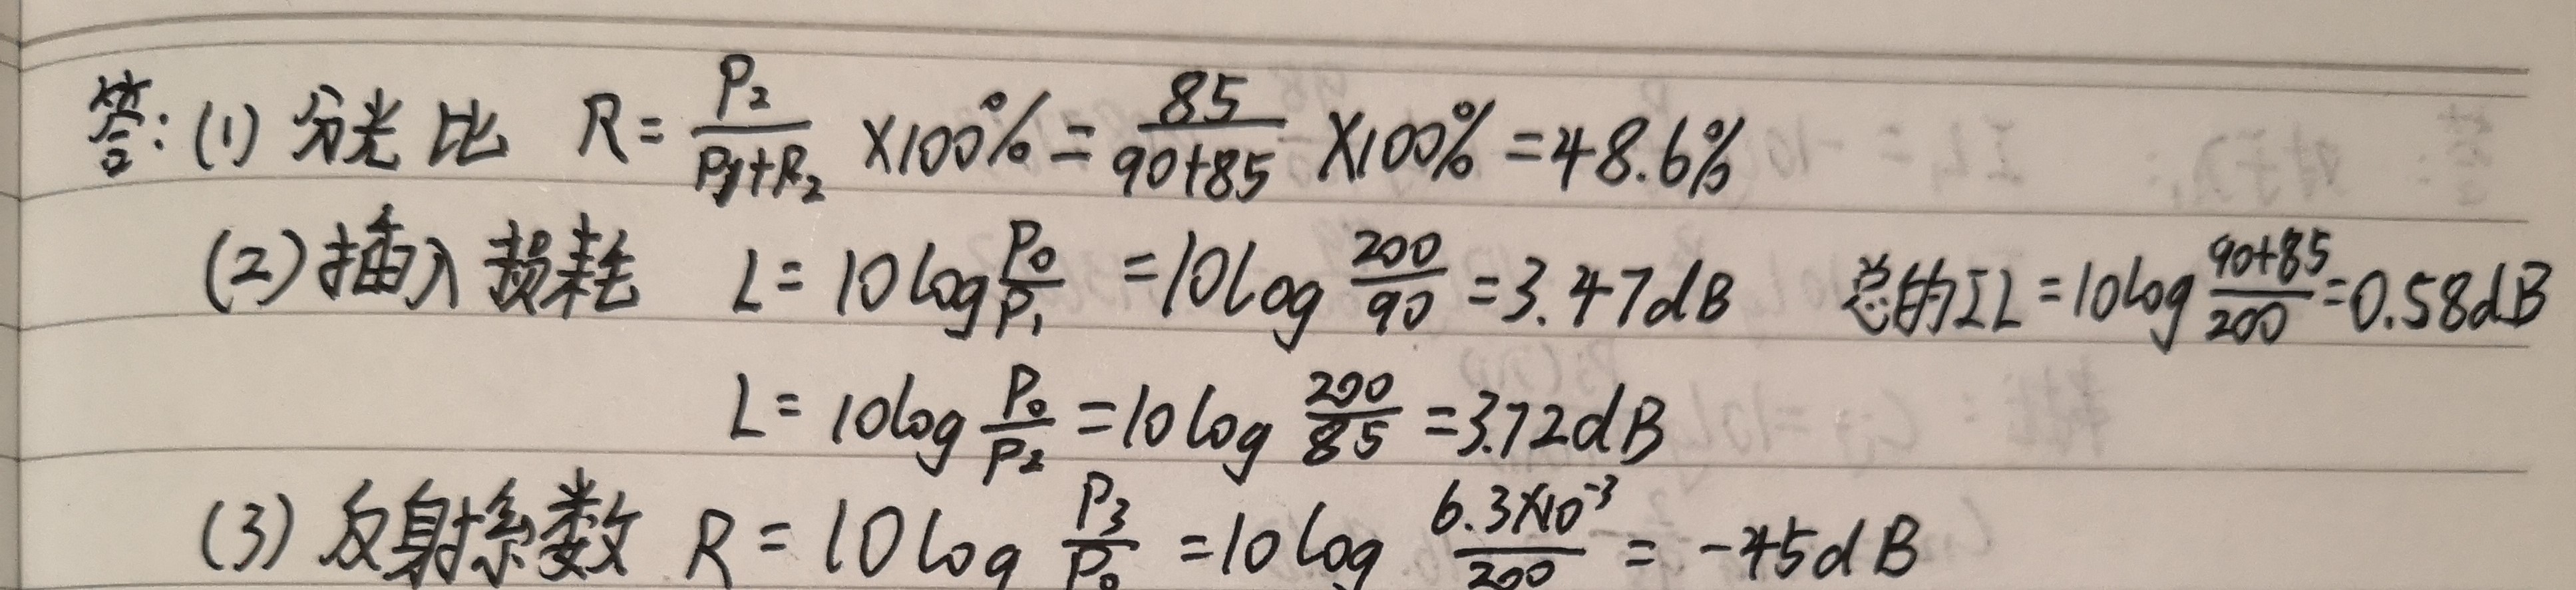 答:(1)分光比 R=P₂/(P₁+P₂)×100%=85/(90+85)×100%=48.6%
(2)插入损耗 L=10logP₀/P₁=10log200/90=3.47dB 总的IL=10log(90+85)/200=0.58dB
L=10logP₀/P₂=10log200/85=3.72dB
(3)反射系数 R=10logP₃/P₀=10log6.3×10⁻³/200=-45dB